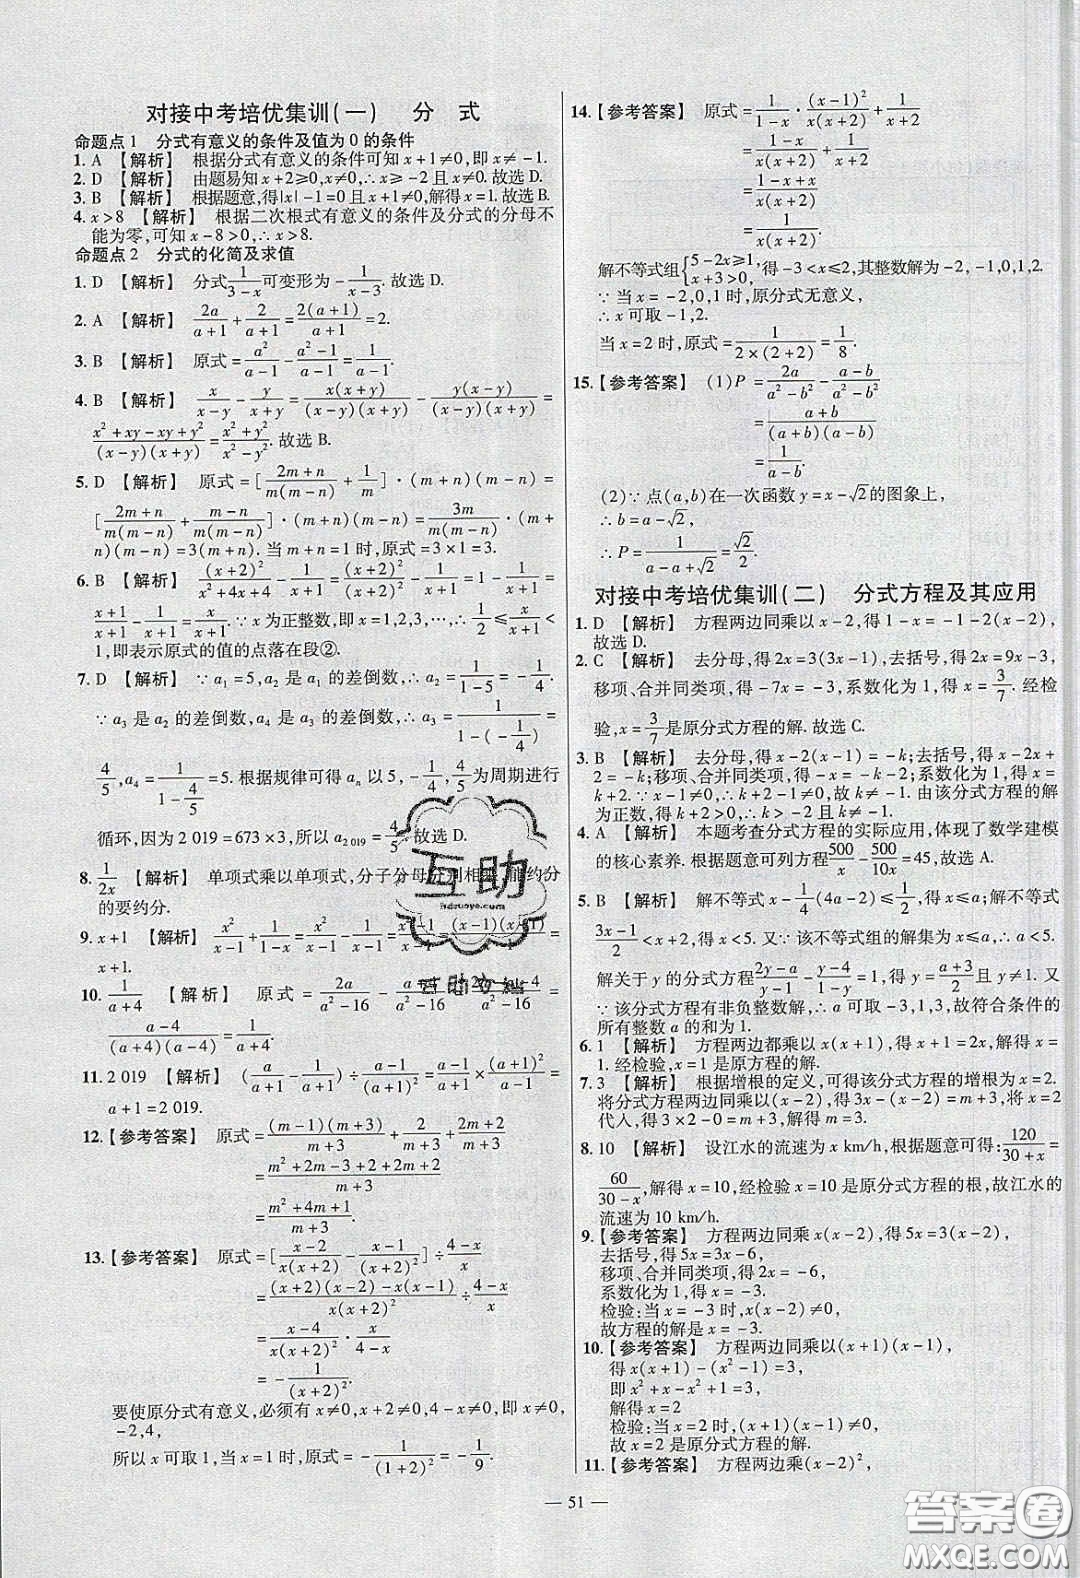 对接中考培优集训(一)　分　式
命题点1　分式有意义的条件及值为0的条件
1. A 【解析】 根据分式有意义的条件可知x+1≠0,即x≠-1.
2. D 【解析】 由题易知x+2≥0,x≠0,∴x≥-2且x≠0.故选D.
3. B 【解析】 根据题意,得|x|-1=0且x+1≠0,解得x=1.故选B.
4. x>8 【解析】 根据二次根式有意义的条件及分式的分母不
能为零,可知x-8>0,∴x>8.
命题点2　分式的化简及求值
1. D 【解析】 分式1/(3-x)可变形为-1/(x-3).故选D.
2. A 【解析】 2a/(a+1)+2/(a+1)=2(a+1)/(a+1)=2.
3. B 【解析】 原式=a²/(a-1)-(a²-1)/(a-1)=1/(a-1).
4. B 【解析】 x/(x-y)-y/(x+y)=x(x+y)/((x-y)(x+y))-y(x-y)/((x-y)(x+y))=
(x²+xy-xy+y²)/((x-y)(x+y))=(x²+y²)/(x²-y²).故选B.
5. D 【解析】 原式=[(2m+n)/(m(m-n))+1/m]·(m+n)(m-n)=
[(2m+n)/(m(m-n))+(m-n)/(m(m-n))]·(m+n)(m-n)=3m/(m(m-n))·(m+
n)(m-n)=3(m+n).当m+n=1时,原式=3×1=3.
6. B 【解析】 (x+2)²/(x²+4x+4)-1/(x+1)=(x+2)²/(x+2)²-1/(x+1)=1-1/(x+1)=
(x+1-1)/(x+1)=x/(x+1).∵x为正整数,即x=1,2,3,…,∴1/2≤x/(x+1)<
1,即表示原式的值的点落在段②.
7. D 【解析】 ∵a₁=5,a₂是a₁的差倒数,∴a₂=1/(1-5)=-1/4.
∵a₃是a₂的差倒数,a₄是a₃的差倒数,∴a₃=1/(1-(-1/4))=
4/5,a₄=1/(1-4/5)=5.根据规律可得aₙ以5,-1/4,4/5为周期进行
循环,因为2 019=673×3,所以a₂₀₁₉=4/5.故选D.
8. 1/(2x) 【解析】 单项式乘以单项式,分子分母分别相乘,能约分
的要约分.
9. x+1 【解析】 x²/(x-1)+1/(1-x)=x²/(x-1)-1/(x-1)=(x-1)(x+1)/(x-1)=
x+1.
10. 1/(a+4) 【解析】 原式=2a/(a²-16)-(a+4)/(a²-16)=(a-4)/(a²-16)=
(a-4)/((a+4)(a-4))=1/(a+4).
11. 2 019 【解析】 (a/(a+1)-1/(a+1))÷(a-1)/(a+1)²=(a-1)/(a+1)×(a+1)²/(a-1)=
a+1=2 019.
12. 【参考答案】 原式=(m-1)(m+3)/(m+3)+2/(m+3)+(2m+2)/(m+3)
=(m²+2m-3+2+2m+2)/(m+3)
=(m²+4m+1)/(m+3).
13. 【参考答案】 原式=[(x-2)/(x(x+2))-(x-1)/(x+2)²]÷(4-x)/x
=((x+2)(x-2)-x(x-1))/(x(x+2)²)÷(4-x)/x
=(x-4)/(x(x+2)²)·x/(4-x)
=-1/(x+2)².
要使原分式有意义,必须有x≠0,x+2≠0,4-x≠0,即x≠0,
-2,4,
所以x可取1,当x=1时,原式=-1/(1+2)²=-1/9.
14. 【参考答案】 原式=1/(1-x)·(x-1)²/(x(x+2))+1/(x+2)
=(1-x)/(x(x+2))+1/(x+2)
=(1-x+x)/(x(x+2))
=1/(x(x+2)).
解不等式组{5-2x≥1,x+3>0,得-3<x≤2,其整数解为-2,-1,0,1,2.
∵当x=-2,0,1时,原分式无意义,
∴x可取-1,2.
当x=2时,原式=1/(2×(2+2))=1/8.
15. 【参考答案】 (1)P=2a/(a²-b²)-(a-b)/(a²-b²)
=(a+b)/((a+b)(a-b))
=1/(a-b).
(2)∵点(a,b)在一次函数y=x-√2的图象上,
∴b=a-√2,
∴P=1/(a-a+√2)=√2/2.
对接中考培优集训(二)　分式方程及其应用
1. D 【解析】 方程两边同乘以x-2,得1-x=-1-2(x-2).
故选D.
2. C 【解析】 去分母,得2x=3(3x-1),去括号,得2x=9x-3,
移项、合并同类项,得-7x=-3,系数化为1,得x=3/7.经检
验,x=3/7是原分式方程的解.故选C.
3. B 【解析】 去分母,得x-2(x-1)=-k;去括号,得x-2x+
2=-k;移项、合并同类项,得-x=-k-2;系数化为1,得x=
k+2.∵x-1≠0,∴k+2-1≠0,∴k≠-1.由该分式方程的解
为正数,得k+2>0,∴k>-2,即k>-2且k≠-1.
4. A 【解析】 本题考查分式方程的实际应用,体现了数学建模
的核心素养.根据题意可列方程500/x-500/(10x)=45,故选A.
5. B 【解析】 解不等式x-1/4(4a-2)≤1/2,得x≤a,解不等式
(3x-1)/2<x+2,得x<5.又∵该不等式组的解集为x≤a,∴a<5.
解关于y的分式方程(2y-a)/(y-1)-(y-4)/(1-y)=1,得y=(a+3)/2且y≠1.又
∵该分式方程有非负整数解,∴a可取-3,1,3,故符合条件的
所有整数a的和为1.
6. 1 【解析】 方程两边都乘以x(x+1),得x+1=2x,解得x=
1.经检验,x=1是原方程的解.
7. 3 【解析】 根据增根的定义,可得该分式方程的增根为x=2.
将分式方程两边同乘以(x-2),得3x-(x-2)=m+3,将x=2
代人,得3×2-0=m+3,解得m=3.
8. 10 【解析】 设江水的流速为x km/h,根据题意可得:120/(30+x)=
60/(30-x),解得x=10,经检验x=10是原分式方程的根,故江水的
流速为10 km/h.
9. 【参考答案】 方程两边同乘x(x-2),得5x=3(x-2),
去括号,得5x=3x-6,
移项、合并同类项,得2x=-6,
系数化为1,得x=-3.
检验:当x=-3时,x(x-2)≠0,
故方程的解是x=-3.
10. 【参考答案】 方程两边同乘以(x+1)(x-1),
得x(x+1)-(x²-1)=3,
即x²+x-x²+1=3,
解得x=2
检验:当x=2时,(x+1)(x-1)≠0,
故x=2是原分式方程的解.
11. 【参考答案】 方程两边乘(x-2)²,
— 51 —
互助
hdzuoye.com
互助文档
答案圈
MXQE.COM